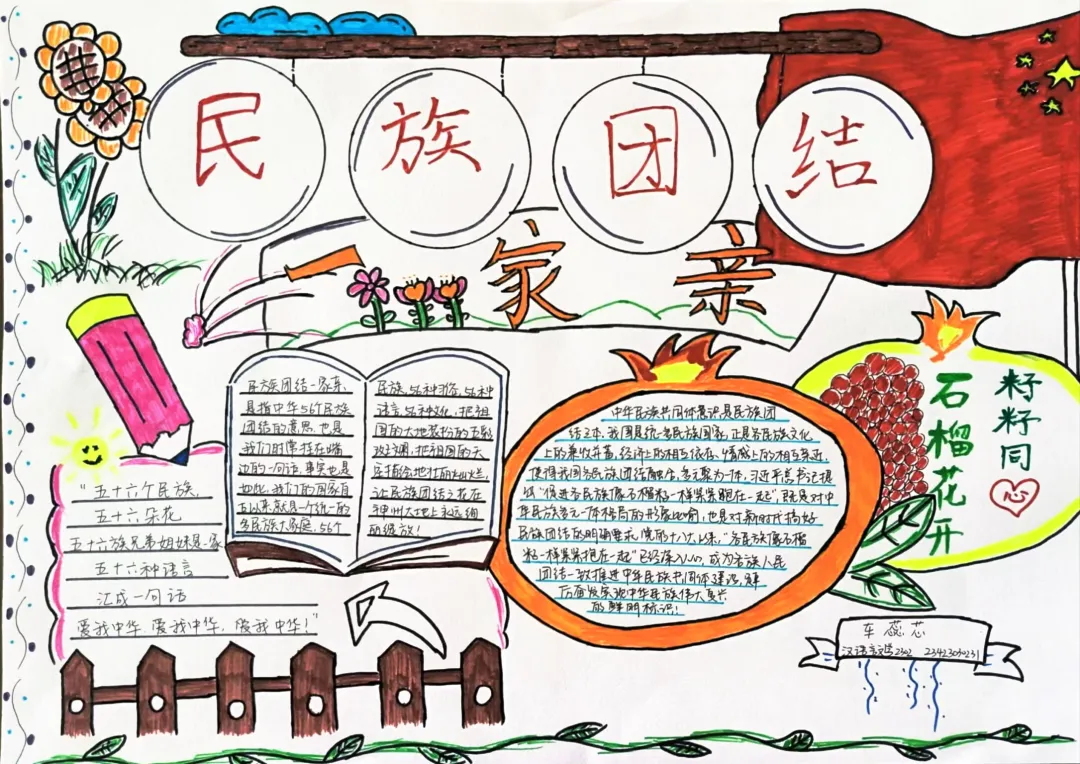 民族团结
一家亲
民族团结一家亲,
是指中华56个民族
团结的意思,也是
我们时常挂在嘴
边的一句话,事实也是
如此,我们的国家自
古以来就是一个统一的
多民族大家庭,56个
民族,56种
语言,56种文化,把祖
国的大地装扮的五彩
把祖国的天
让民族团结之花在
神州大地上永远绚
丽绽放!
中华民族共同体意识是民族团
结之本,我国是统一多民族国家,正是各民族文化
上的兼收并蓄,经济上的相互依存、情感上的相互亲近,
使得我国各民族团结融合,多元聚为一体,习近平总书记提
"促进各民族像石榴籽一样紧紧抱在一起",既是对中
华民族多元一体格局的形象比喻,也是对新时代搞好
民族团结的明确要求,党的十八大以来,"各民族像石榴
籽一样紧紧抱在一起"已经深入人心,成为各族人民
团结一致推进中华民族共同体建设,
中华民族伟大复兴
的鲜明标识!
石榴花开
籽籽同心
"五十六个民族,
五十六朵花
五十六族兄弟姐妹是一家
五十六种语言
汇成一句话
爱我中华、爱我中华、爱我中华!"
车蕊芯
汉语言文学2302 23423030231